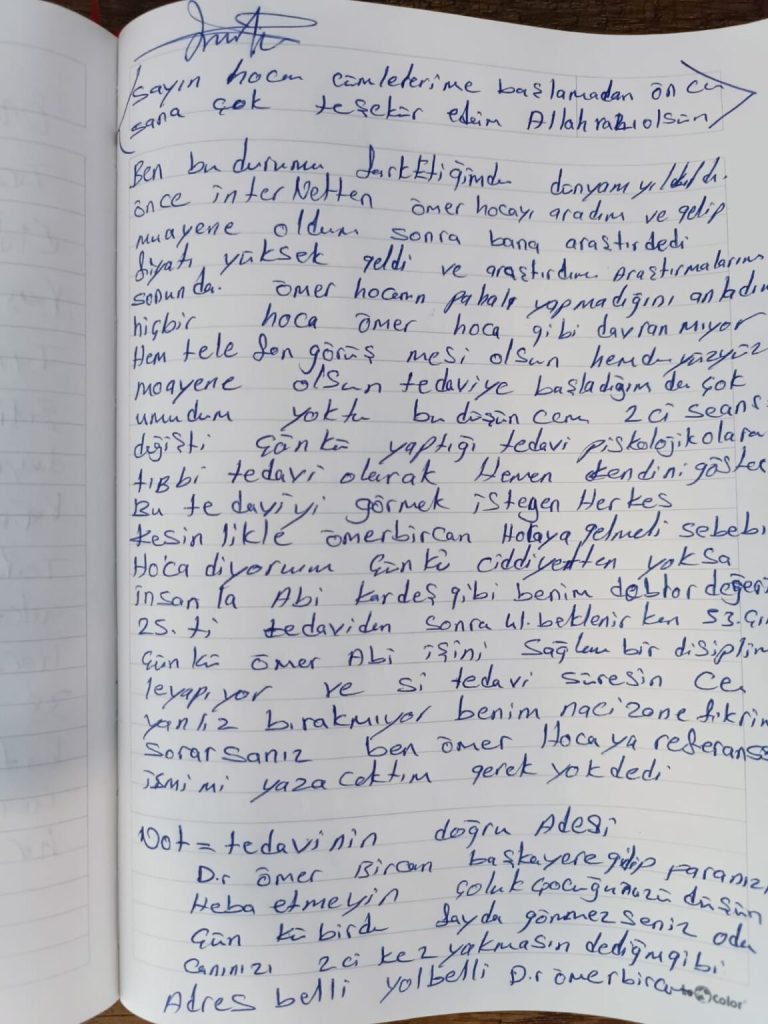 sayın hocam cümlelerime başlamadan önce
sana çok teşekür ederim Allah razı olsun
Ben bu durumu farkEtiğimde dünyam yıkıldı.
önce internetten ömer hocayı aradım ve gelip
muayene oldum sonra bana araştır dedi
fiyatı yüksek geldi ve araştırdım Araştırmalarım
sonunda. ömer hocanın pahalı yapmadığını anladım
hiçbir hoca ömer hoca gibi davranmıyor
Hem telefon görüşmesi olsun hemde yüzyüz
moayene olsun tedaviye başladığımda çok
umudum yoktu bu düşüncem 2ci seans
değişti çünkü yaptığı tedavi piskolojik olara
tıBbi tedavi olarak Hemen kendini göster
Bu tedaviyi görmek isteyen Herkes
kesinlikle ömerbircan Hocaya gelmeli sebebi
Hoca diyorum çünkü ciddiyetten yoksa
insanla Abi kardeş gibi benim doktor değeri
25. ti tedaviden sonra 41. beklenirken 53. çı
çünkü ömer Abi işini sağlam bir disiplin
le yapıyor ve si tedavi süresince
yanlız bırakmıyor benim nacizane fikrim
sorarsanız ben ömer Hocaya referans
ismimi yazacaktım gerek yok dedi
Not = tedavinin doğru Adesi
D.r ömer Bircan başkayere gidip paranızı
Heba etmeyin çoluk çocuğunuzu düşün
çünkü birde fayda görmezseniz oda
canınızı 2ci kez yakmasın dediğim gibi
Adres belli yol belli D.r ömerbirca
color